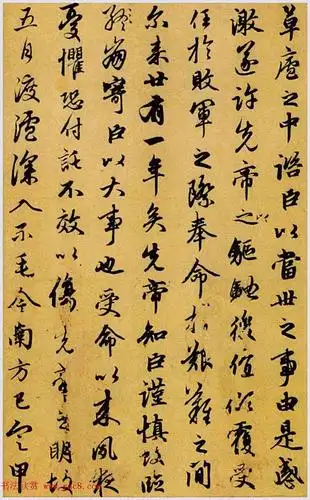 草廬之中諮臣以當世之事由是感
激遂許先帝之驅馳後值傾覆受
任於敗軍之際奉命於艱難之間
尔来廿有一年矣先帝知臣謹慎故臨
崩寄臣以大事也受命以来夙夜
憂懼恐付託不效以傷先帝之明故
五月渡瀘深入不毛今南方已定甲
书法欣赏